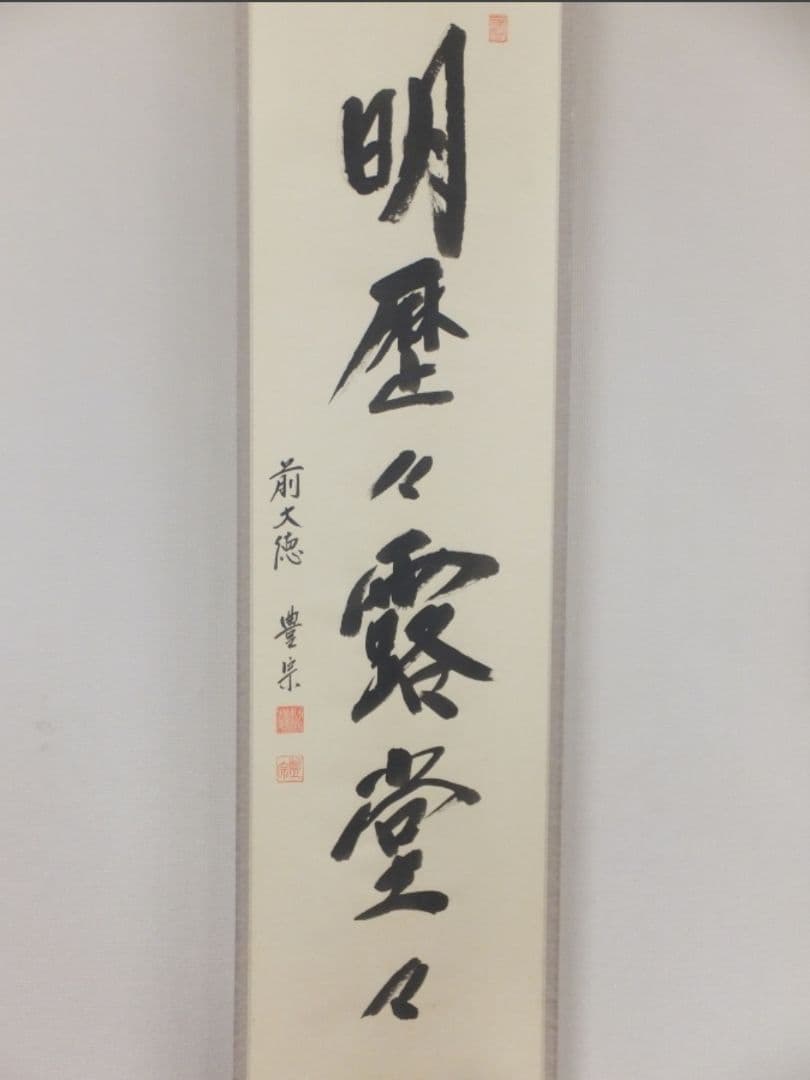 明歴々露堂々
前大徳 豊宗